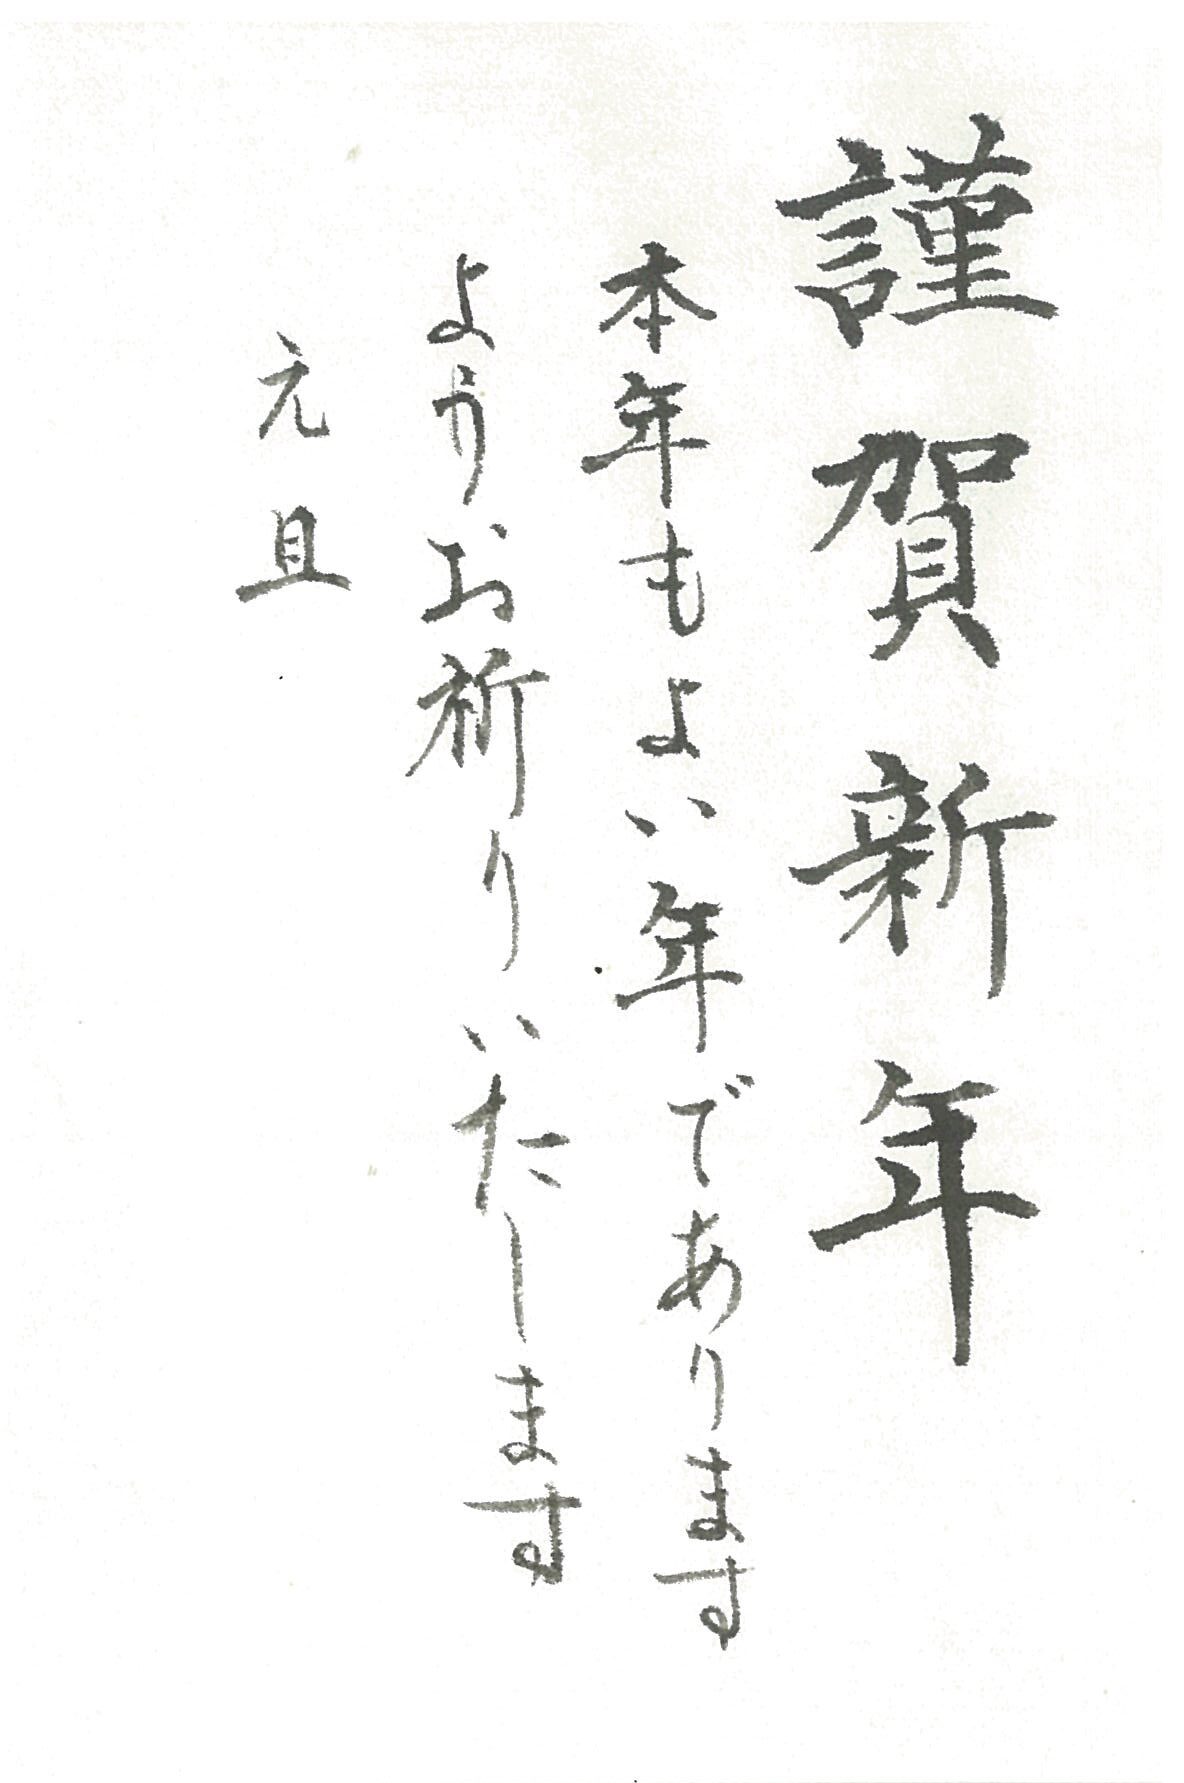 謹賀新年
本年もよい年であります
ようお祈りいたします
元旦